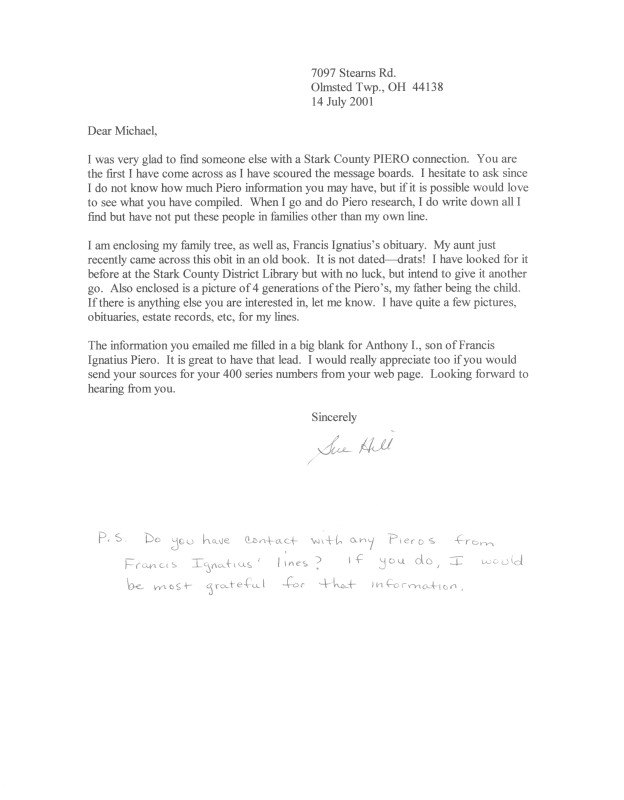 7097 Stearns Rd.
Olmsted Twp., OH  44138
14 July 2001
Dear Michael,
I was very glad to find someone else with a Stark County PIERO connection.  You are
the first I have come across as I have scoured the message boards.  I hesitate to ask since
I do not know how much Piero information you may have, but if it is possible would love
to see what you have compiled.  When I go and do Piero research, I do write down all I
find but have not put these people in families other than my own line.
I am enclosing my family tree, as well as, Francis Ignatius's obituary.  My aunt just
recently came across this obit in an old book.  It is not dated—drats!  I have looked for it
before at the Stark County District Library but with no luck, but intend to give it another
go.  Also enclosed is a picture of 4 generations of the Piero's, my father being the child.
If there is anything else you are interested in, let me know.  I have quite a few pictures,
obituaries, estate records, etc, for my lines.
The information you emailed me filled in a big blank for Anthony I., son of Francis
Ignatius Piero.  It is great to have that lead.  I would really appreciate too if you would
send your sources for your 400 series numbers from your web page.  Looking forward to
hearing from you.
Sincerely
Sue Hill
P.S. Do you have contact with any Pieros from
Francis Ignatius' lines? If you do, I would
be most grateful for that information.